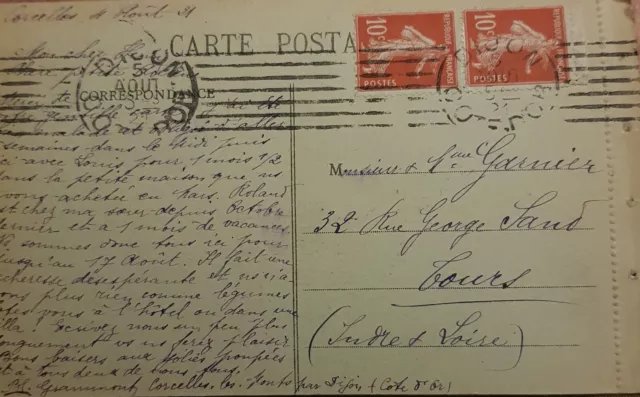 Corcelles 2 Août 21
CARTE POSTA
CORRESPONDANCE
DIJON
AOUT
CÔTE D'OR
10c
POSTES
RÉPUBLIQUE FRANÇAISE
10c
POSTES
RÉPUBLIQUE FRANÇAISE
DIJON
Mon cher
semaines dans le Midi puis
ici avec Louis pour 1 mois 1/2
dans la petite maison que ns
avons achetée en Mars. Roland
est chez ma sœur depuis Octobre
dernier et a 1 mois de vacances
ns sommes donc tous ici pour
jusqu'au 17 Août. Il fait une
sécheresse désespérante et ns n'a-
vons plus rien comme légumes
êtes vous à l'hôtel ou dans une
villa? écrivez nous un peu plus
longuement vs ns ferez plaisir
Bons baisers aux jolies poupées
et à tous deux de nous tous.
Grammont, Corcelles-les-Monts par Dijon (Côte d'Or)
Monsieur & Mme Garnier
32 Rue George Sand
Tours
(Indre & Loire)